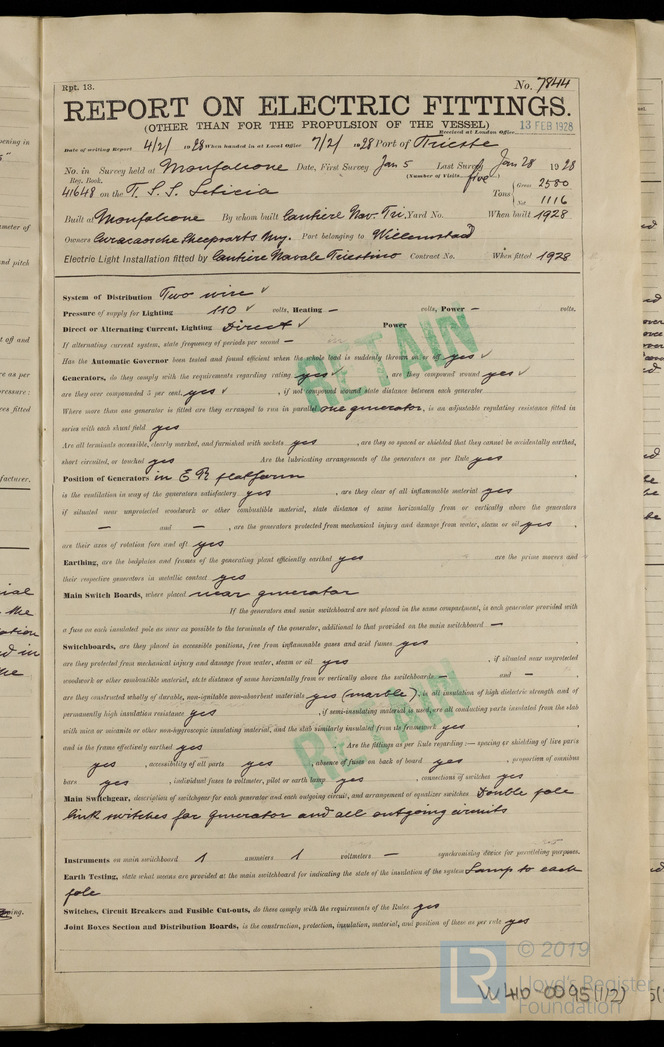 Rpt. 13.
No. 7844
REPORT ON ELECTRIC FITTINGS.
(OTHER THAN FOR THE PROPULSION OF THE VESSEL)
Received at London Office 13 FEB 1928
Date of writing Report 4/2/ 1928 When handed in at Local Office 7/2/ 1928 Port of Trieste
No. in Survey held at Monfalcone Date, First Survey Jan 5 Last Survey Jan 28 1928
Reg. Book. (Number of Visits five)
41648 on the T. S. S. Leticia Tons { Gross 2580
Net 1116
Built at Monfalcone By whom built Cantiere Nav. Tri. Yard No. When built 1928
Owners Curacaosche Scheepvaart My. Port belonging to Willemstad
Electric Light Installation fitted by Cantiere Navale Triestino Contract No. When fitted 1928
System of Distribution Two wire ✓
Pressure of supply for Lighting 110 ✓ volts, Heating — volts, Power — volts.
Direct or Alternating Current, Lighting Direct ✓ Power
If alternating current system, state frequency of periods per second —
Has the Automatic Governor been tested and found efficient when the whole load is suddenly thrown on or off yes ✓
Generators, do they comply with the requirements regarding rating yes ✓, are they compound wound yes ✓
are they over compounded 5 per cent. yes ✓, if not compound wound state distance between each generator
Where more than one generator is fitted are they arranged to run in parallel one generator, is an adjustable regulating resistance fitted in
series with each shunt field yes
Are all terminals accessible, clearly marked, and furnished with sockets yes, are they so spaced or shielded that they cannot be accidentally earthed,
short circuited, or touched yes Are the lubricating arrangements of the generators as per Rule yes
Position of Generators in E R platform
is the ventilation in way of the generators satisfactory yes, are they clear of all inflammable material yes
if situated near unprotected woodwork or other combustible material, state distance of same horizontally from or vertically above the generators
— and —, are the generators protected from mechanical injury and damage from water, steam or oil yes,
are their axes of rotation fore and aft yes
Earthing, are the bedplates and frames of the generating plant efficiently earthed yes are the prime movers and
their respective generators in metallic contact yes
Main Switch Boards, where placed near generator
If the generators and main switchboard are not placed in the same compartment, is each generator provided with
a fuse on each insulated pole as near as possible to the terminals of the generator, additional to that provided on the main switchboard —
Switchboards, are they placed in accessible positions, free from inflammable gases and acid fumes yes
are they protected from mechanical injury and damage from water, steam or oil yes, if situated near unprotected
woodwork or other combustible material, state distance of same horizontally from or vertically above the switchboards — and —,
are they constructed wholly of durable, non-ignitable non-absorbent materials yes (marble), is all insulation of high dielectric strength and of
permanently high insulation resistance yes, if semi-insulating material is used, are all conducting parts insulated from the slab
with mica or micanite or other non-hygroscopic insulating material, and the slab similarly insulated from its framework yes
and is the frame effectively earthed yes. Are the fittings as per Rule regarding :— spacing or shielding of live parts
yes, accessibility of all parts yes, absence of fuses on back of board yes, proportion of omnibus
bars yes, individual fuses to voltmeter, pilot or earth lamp yes, connections of switches yes
Main Switchgear, description of switchgear for each generator and each outgoing circuit, and arrangement of equalizer switches Double pole
link switches for generator and all outgoing circuits
Instruments on main switchboard 1 ammeters 1 voltmeters — synchronising device for paralleling purposes.
Earth Testing, state what means are provided at the main switchboard for indicating the state of the insulation of the system Lamp to each
pole
Switches, Circuit Breakers and Fusible Cut-outs, do these comply with the requirements of the Rules yes
Joint Boxes Section and Distribution Boards, is the construction, protection, insulation, material, and position of these as per rule yes
RETAIN
RETAIN
© 2019
Lloyd's Register
Foundation
W40-0095(1/2)